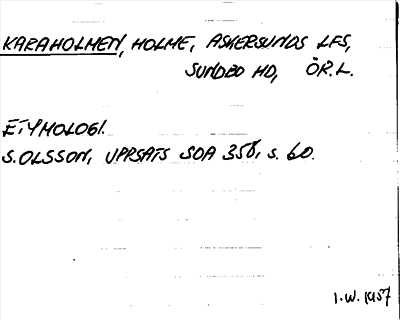 KARAHOLMEN, HOLME, ASKERSUNDS LFS,
SUNDBO HD, ÖR.L.
ETYMOLOGI.
S. OLSSON, UPPSATS SOA 358, s. 60.
I.W. 1957